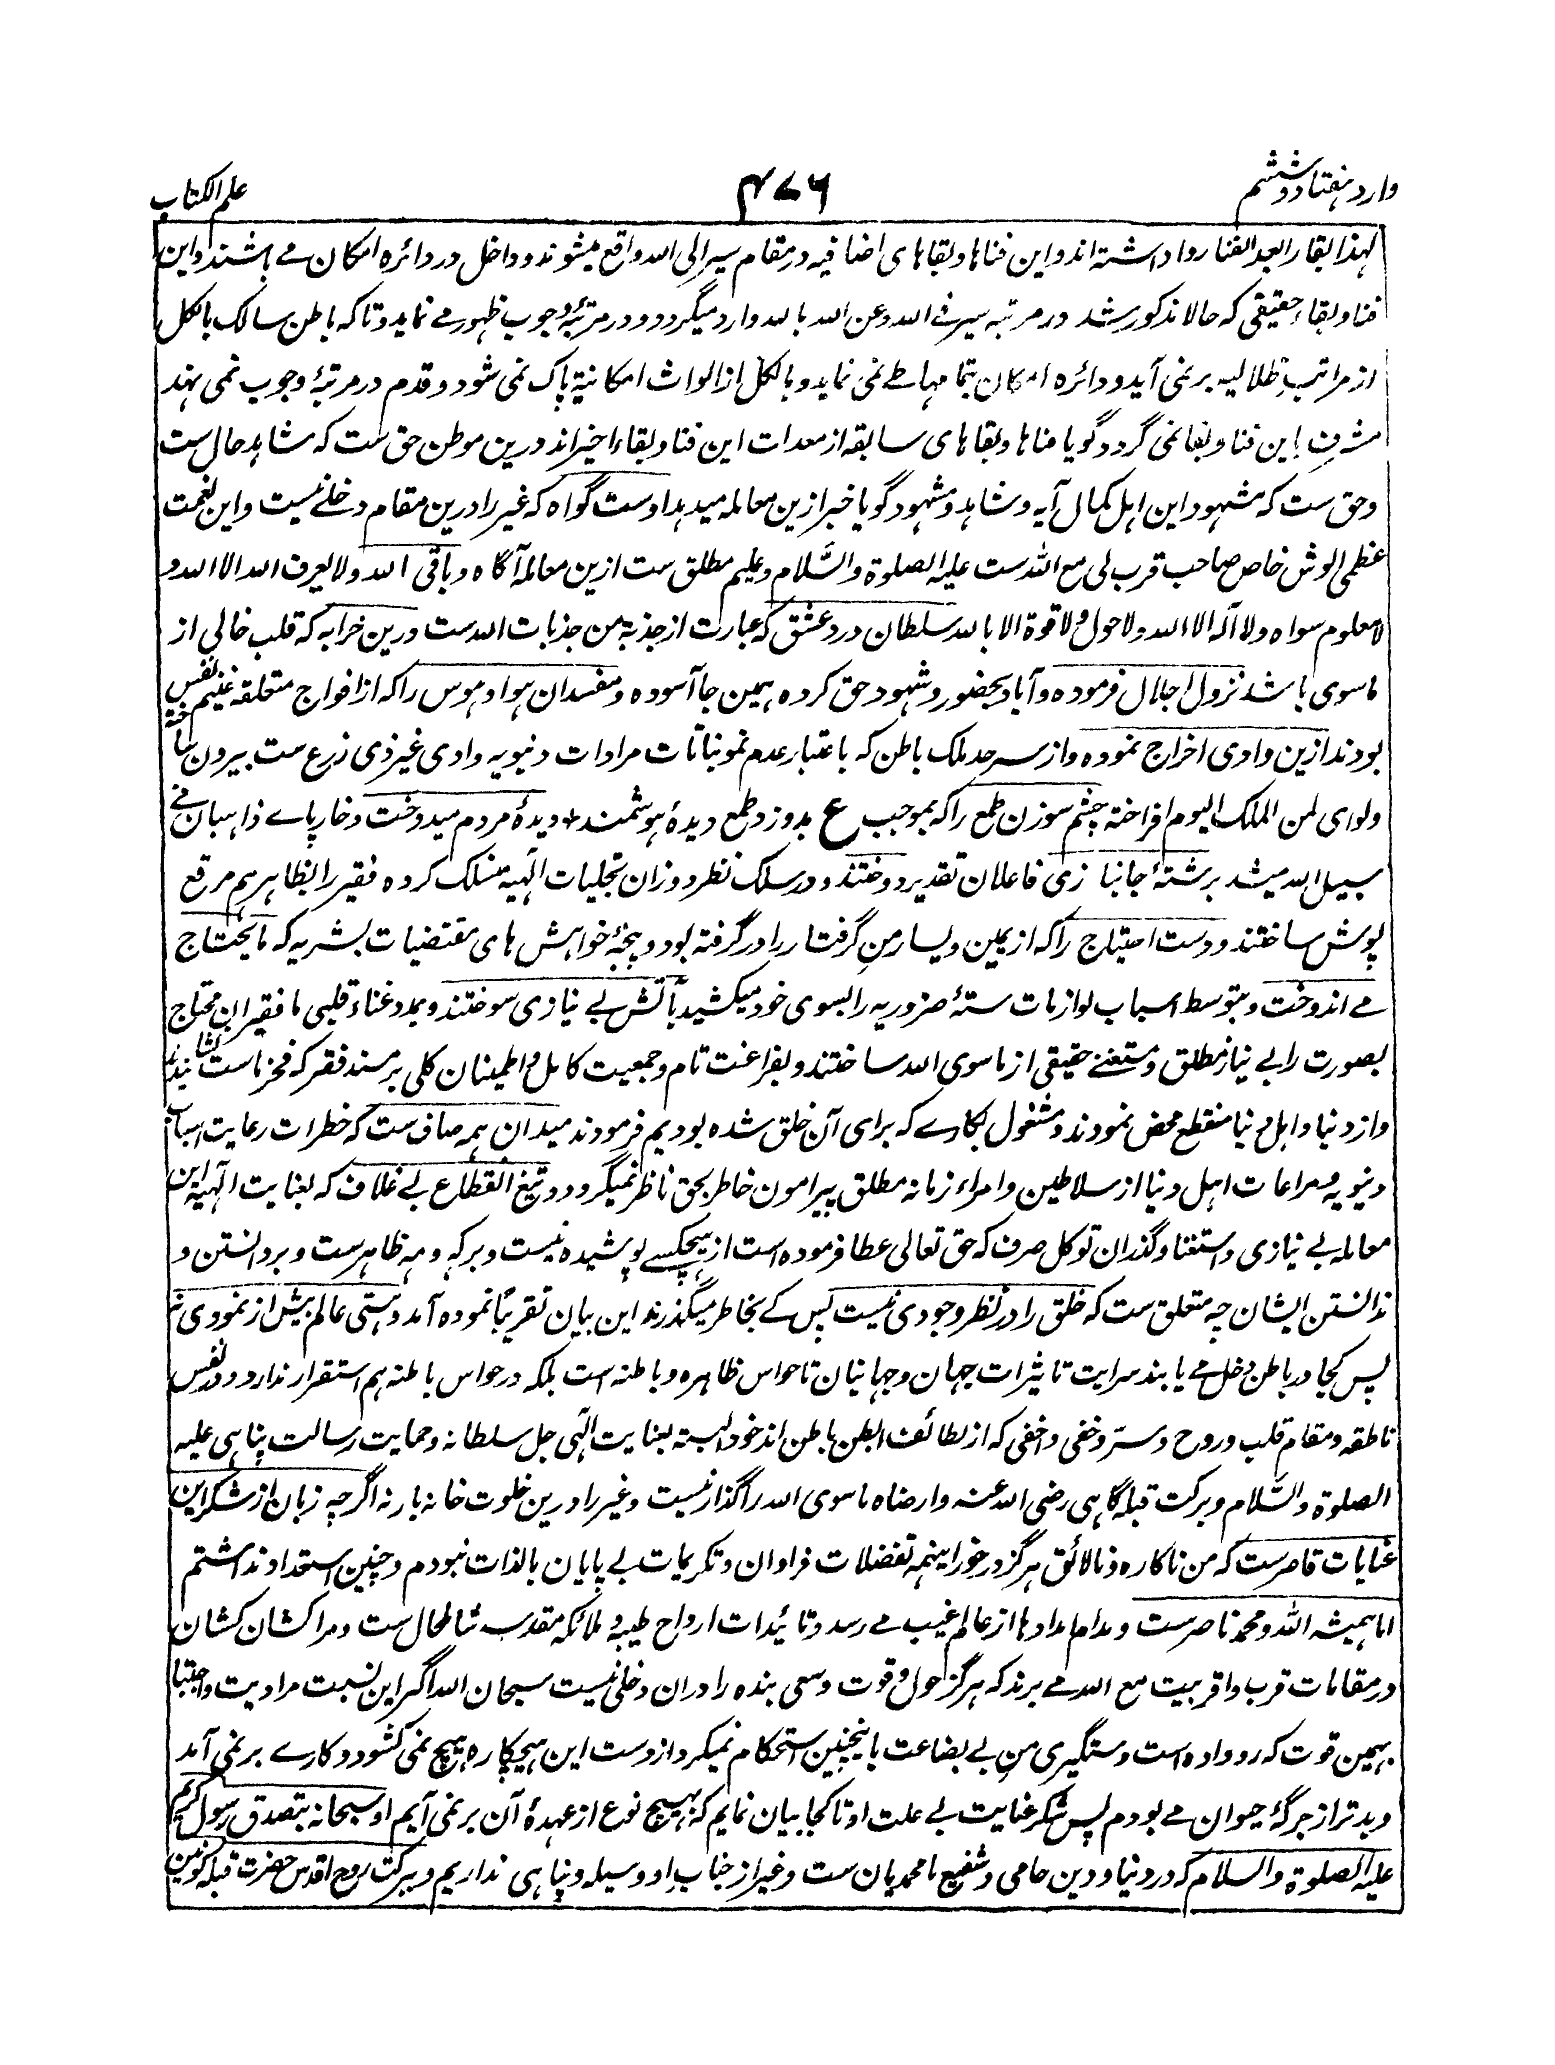 وارد هفتاد و ششم
۴۷۶
علم الکتاب
لهذا بقا را بعد الفنا روا داشته اند و این فناها و بقاهای اضافیه در مقام سیر الی الله واقع میشوند و داخل در دائره امکان مے باشند و این
فنا و بقاء حقیقی که حالا مذکور شد در مرتبه سیر فے الله و عن الله بالله وارد میگردد و در مرتبهٔ وجوب ظهور مے نماید و تا که باطن سالک بالکل
از مراتب ظلالیه بر نمی آید و دائره امکان بتمامها طے نمی نماید و بالکل از الواث امکانیة پاک نمی شود و قدم در مرتبهٔ وجوب نمی نهد
مشرف باین فنا و بقا نمی گردد گویا فناها و بقاهای سابقه از معدات این فنا و بقاء اخیر اند درین موطن حق ست که شاهد حال ست
و حق ست که مشهود این اهل کمال آیه و شاهد و مشهود گویا خبر ازین معامله میدهد اوست گواه که غیر را درین مقام دخلے نیست و این نعمت
عظمی الوش خاص صاحب قرب لی مع الله ست علیه الصلوة والسّلام و علیم مطلق ست ازین معامله آگاه و باقی الله ولا یعرف الله الا الله و
لا معلوم سواه ولا آله الا الله ولا حول ولا قوة الا بالله سلطان درد عشق که عبارت از جذبة من جذبات الله ست درین خرابه که قلب خالی از
ما سوی باشد نزول اجلال فرموده و آباد بحضور و شهود حق کرده همین جا آسوده و مفسدان هوا و هوس را که از افواج متعلقه غنیم نفس
بودند ازین وادی اخراج نموده و از سرحد ملک باطن که باعتبار عدم نمو نباتات مرادات دنیویه وادی غیر ذی زرع ست بیرون ساخته
ولوای لمن الملک الیوم افراخته چشم سوزن طمع را که بموجب ع بدوزد طمع دیدهٔ هوشمند + دیدهٔ مردم میدوخت و خار پاے ذاهبان فے
سبیل الله میشد برشتهٔ جانبازی فاعلان تقدیر دوختند و در سلک نظر دوزان تجلیات الٓهیه منسلک کرده فقیر را بظاهر هم مرقع
پوش ساختند و دست احتیاج را که از یمین و یسار من گرفتار را در گرفته بود و پنجهٔ خواهش های مقتضیات بشریه که ما یحتاج
مے اندوخت و بتوسط اسباب لوازمات ستهٔ ضروریه را بسوی خود میکشید بآتش بے نیازی سوختند و بمدد غناء قلبی ما فقیران محتاج
بصورت را بے نیاز مطلق و مستغنے حقیقی از ما سوی الله ساختند و بفراغت تام و جمعیت کامل و اطمینان کلی بر مسند فقر که فخر ماست نشانیدند
و از دنیا و اهل دنیا منقطع محض نمودند و مشغول بکارے که برای آن خلق شده بودیم فرمودند میدان همه صاف ست که خطرات رعایت اسباب
دنیویه و مراعات اهل دنیا از سلاطین و امراء زمانه مطلق پیرامون خاطر بحق ناظر نمیگردد و تیغ انقطاع بے غلاف که بعنایت الٓهیه این
معامله بے نیازی و استغنا و گذران توکل صرف که حق تعالی عطا فرموده است از هیچکسے پوشیده نیست و بر که و مه ظاهر ست و بر دانستن و
ندانستن ایشان چه متعلق ست که خلق را در نظر وجودی نیست پس کے بخاطر میگذرند این بیان تقریبًا نموده آمد و هستی عالم بیش از نمودی نه
پس کجا در باطن دخل مے یابند سرایت تاثیرات جهان و جهانیان تا حواس ظاهره و باطنه است بلکه در حواس باطنه هم استقرار ندارد و در نفس
ناطقه و مقام قلب و روح و سرّ و خفی و اخفی که از لطائف ابطن باطن اند خود البته بعنایت الٓهی جل سلطانه و حمایت رسالت پناهی علیه
الصلوة والسّلام و برکت قبله گاهی رضی الله عنه و ارضاه ما سوی الله را گذار نیست و غیر را درین خلوت خانه بار نه اگرچه زبان از شکر این
عنایات قاصر ست که من ناکاره و نالائق هرگز در خور اینهمه تفضلات فراوان و تکریمات بے پایان بالذات نبودم و چنین استعداد نداشتم
اما همیشه الله و محمد ناصر ست و مدام امدادها از عالم غیب مے رسد و تائیدات ارواح طیبه و ملائکه مقدسه شامل حال ست و مرا کشان کشان
در مقامات قرب و اقربیت مع الله مے برند که هرگز حول و قوت و سعی بنده را دران دخلی نیست سبحان الله اگر این نسبت مرادیت و اجتبا
بهمین قوت که رو داده است دستگیری من بے بضاعت باینچنین استحکام نمیکرد از دست این هیچکاره هیچ نمی کشود و کارے بر نمی آمد
و بدتر از جرگهٔ حیوان مے بودم پس شکر عنایت بے علت او تا کجا بیان نمایم که بهیچ نوع از عهدهٔ آن بر نمی آیم او سبحانه بتصدق رسول کریم
علیه الصلوة والسلام که در دنیا و دین حامی و شفیع ما محمدیان ست و غیر از جناب او وسیله و پناهی نداریم و ببرکت روح اقدس حضرت قبله کونین